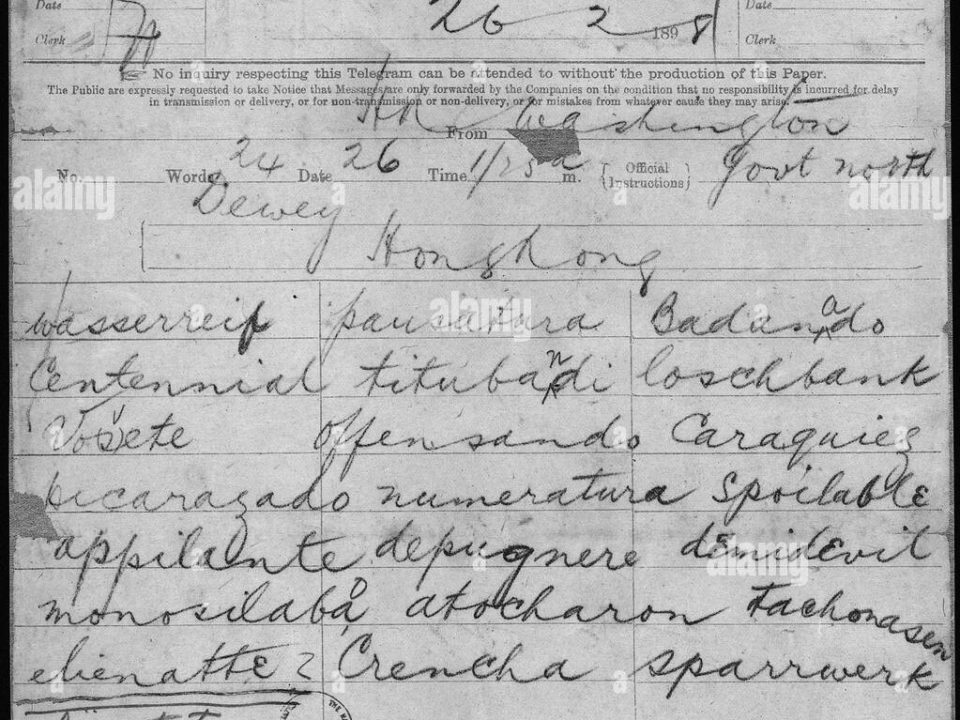 Date
Date
26 2 1898
Clerk
Clerk
No inquiry respecting this Telegram can be attended to without the production of this Paper.
The Public are expressly requested to take Notice that Messages are only forwarded by the Companies on the condition that no responsibility is incurred for delay
in transmission or delivery, or for non-transmission or non-delivery, or for mistakes from whatever cause they may arise.
From Washington
No. Words 24 Date 26 Time 1/25 a m. { Official Instructions } Govt north
Dewey
Hongkong
Wasserreif pausatura Badanado
Centennial titubandi loschbank
Vosete offensando Caraquiez
picarazado numeratura Spoilable
appilante depugnere demidevil
monosilabo atocharon Tachonasen
elienatte Crencha sparrwerk
alamy